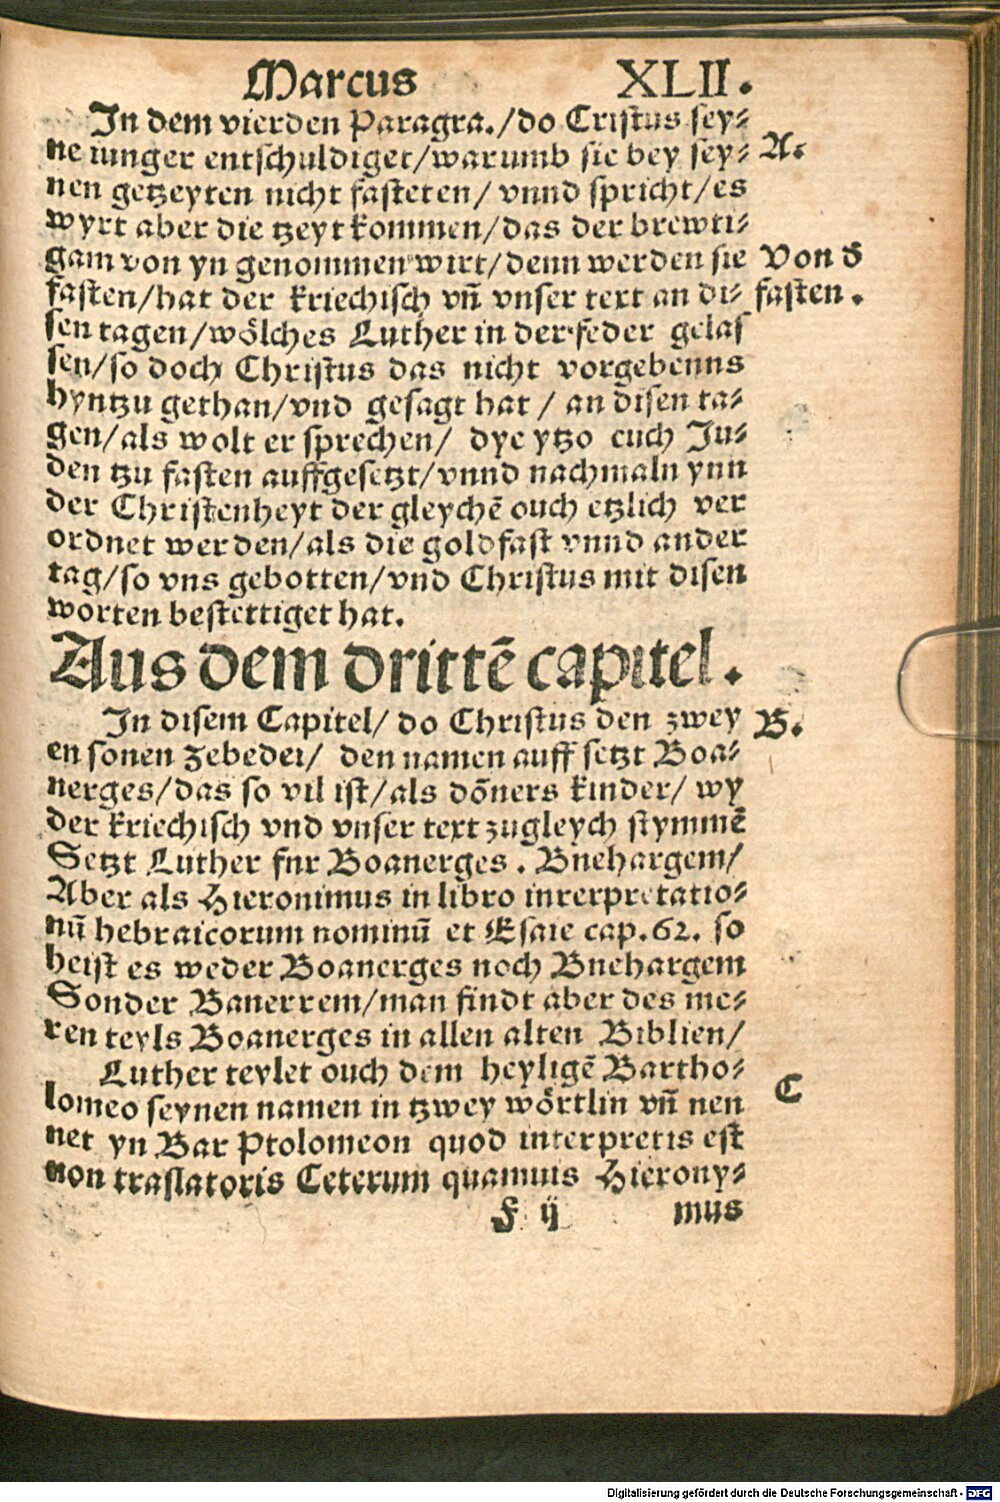 Marcus XLII.
In dem vierden Paragra./do Cristus sey⸗
ne iunger entschuldiget/warumb sie bey sey⸗ A.
nen getzeyten nicht fasteten/ vnnd spricht/es
wyrt aber die tzeyt kommen/das der brewti⸗
gam von yn genommen wirt/denn werden sie Von d̕
fasten/hat der kriechisch vñ vnser text an di⸗ fasten.
sen tagen/wôlches Luther in der feder gelas
sen/so doch Christus das nicht vorgebenns
hyntzu gethan/vnd gesagt hat / an disen ta⸗
gen/als wolt er sprechen/ dye ytzo euch Ju⸗
den tzu fasten auffgesetzt/vnnd nachmaln ynn
der Christenheyt der gleychē ouch etzlich ver
ordnet werden/als die goldfast vnnd ander
tag/so vns gebotten/vnd Christus mit disen
worten bestettiget hat.
Aus dem drittē capitel.
In disem Capitel/ do Christus den zwey B.
en sonen Zebedei/ den namen auff setzt Boa⸗
nerges/das so vil ist/als dōners kinder/ wy
der kriechisch vnd vnser text zugleych stymmē
Setzt Luther fur Boanerges. Bnehargem/
Aber als Hieronimus in libro inrerpretatio⸗
nū hebraicorum nominū et Esaie cap.62. so
heist es weder Boanerges noch Bnehargem
Sonder Banerrem/man findt aber des me⸗
ren teyls Boanerges in allen alten Biblien/
Luther teylet ouch dem heyligē Bartho⸗
lomeo seynen namen in tzwey wôrtlin vñ nen C
net yn Bar Ptolomeon quod interpretis est
non traslatoris Ceterum quamuis Hierony⸗
F ij mus
Digitalisierung gefördert durch die Deutsche Forschungsgemeinschaft - DFG